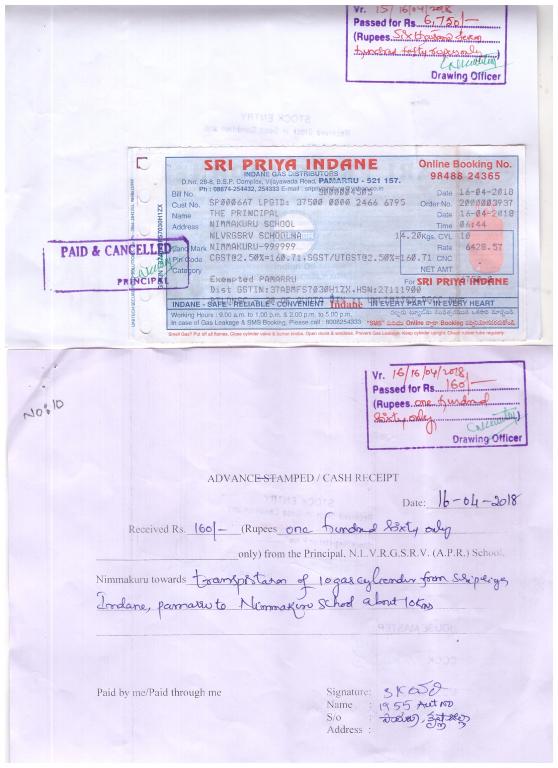 Vr. 15/16/04/2018
Passed for Rs 6,750/-
(Rupees Six thousand seven
hundred fifty rupees only)
Drawing Officer
SRI PRIYA INDANE
INDANE GAS DISTRIBUTORS
D.No. 28-8, B.S.P. Complex, Vijayawada Road, PAMARRU - 521 157.
Ph : 08674-254432, 254333 E-mail :
Online Booking No.
98488 24365
Bill No.
Date 16-04-2018
Cust No. SP000667 LPGID: 37500 0000 2466 6795 Order No. 2000003937
Name THE PRINCIPAL Date 16-04-2018
Address NIMMAKURU SCHOOL Time 06:44
NLVRGSRV SCHOOLNA 14.20Kgs. CYL 10
Land Mark NIMMAKURU-999999 Rate 6428.57
Pin Code CGST@2.50%=160.71:SGST/UTGST@2.50%=160.71 CNC
Category NET AMT
Exempted PAMARRU For SRI PRIYA INDANE
Dist GSTIN:37ABMFS7030H1ZX.HSN:27111900
PAID & CANCELLED
PRINCIPAL
INDANE - SAFE - RELIABLE - CONVENIENT Indane IN EVERY PART - IN EVERY HEART
Working Hours : 9.00 a.m. to 1.00 p.m. & 2.00 p.m. to 5.00 p.m.
In case of Gas Leakage & SMS Booking, Please call : 9008253433
Vr. 16/16/04/2018
Passed for Rs 160/-
(Rupees one hundred
sixty only)
Drawing Officer
No: 10
ADVANCE STAMPED / CASH RECEIPT
Date: 16-04-2018
Received Rs. 160/- (Rupees one hundred sixty only
only) from the Principal, N.L.V.R.G.S.R.V. (A.P.R.) School,
Nimmakuru towards transportation of 10 gas cylinder from Sri priya
Indane, pamarru to Nimmakuru School about 10kms
Paid by me/Paid through me
Signature:
Name : 1955 Auto
S/o :
Address :